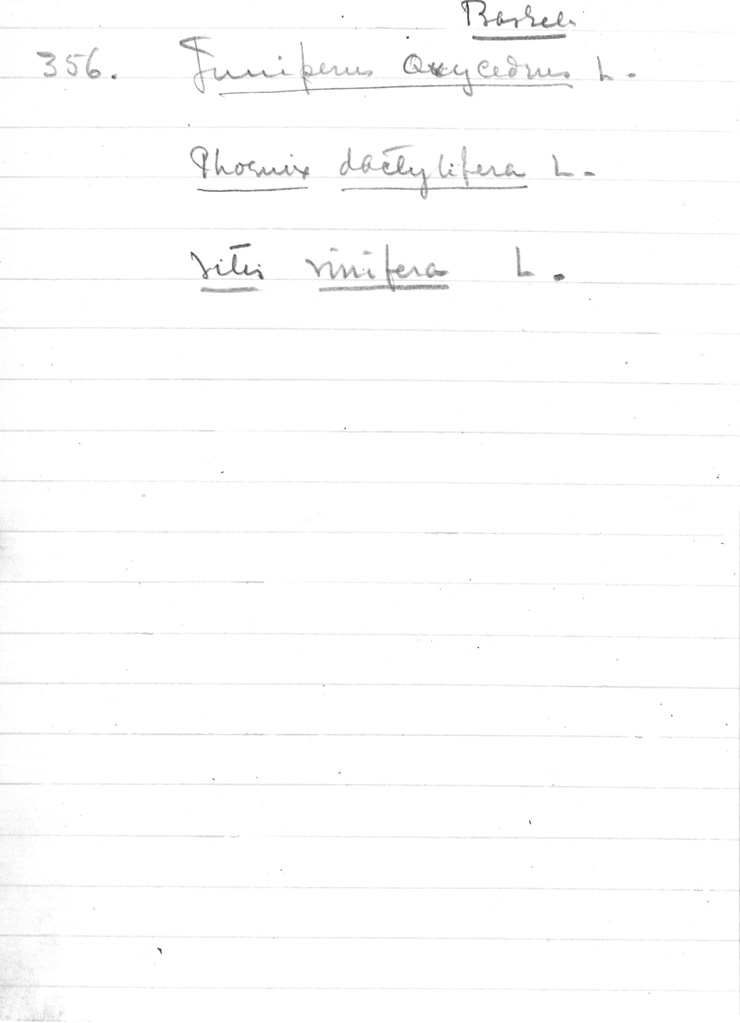 356. Juniperus Oxycedrus L.
Phoenix dactylifera L.
Vitis vinifera L.